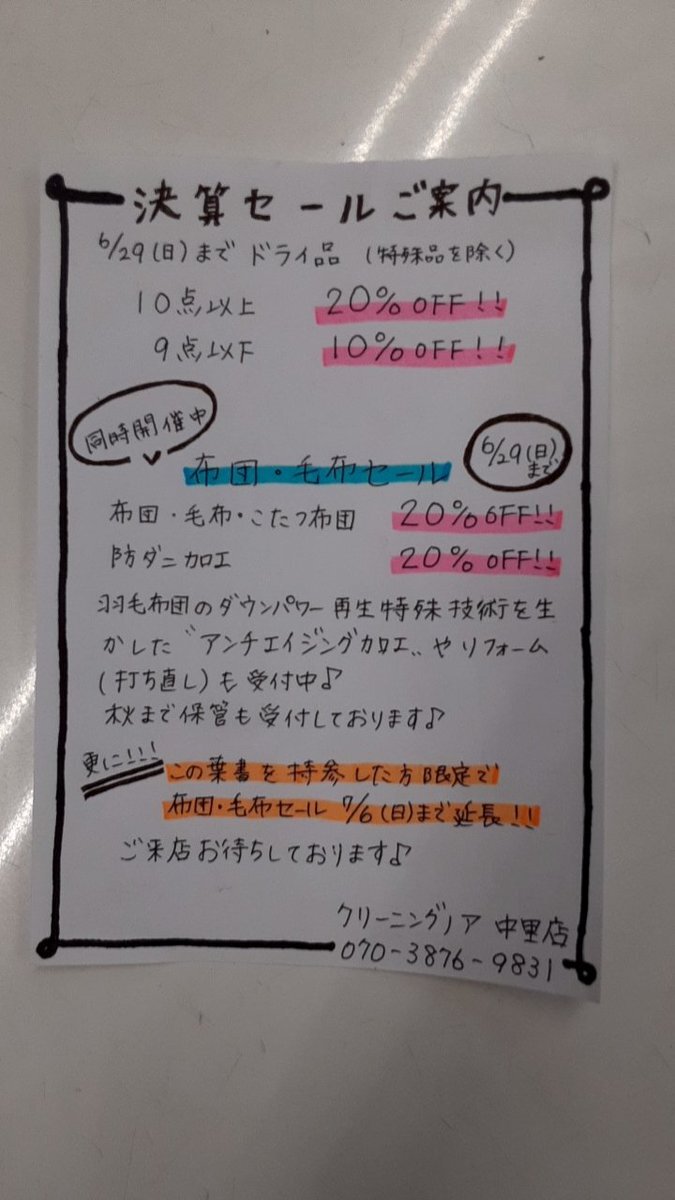 決算セールご案内
6/29(日)まで ドライ品 (特殊品を除く)
10点以上 20%OFF!!
9点以下 10%OFF!!
同時開催中
6/29(日)まで
布団・毛布セール
布団・毛布・こたつ布団 20%OFF!!
防ダニ加工 20%OFF!!
羽毛布団のダウンパワー再生特殊技術を生
かした〝アンチエイジング加工〟やリフォーム
(打ち直し)も受付中♪
秋まで保管も受付しております♪
更に!!! この葉書を持参した方限定で
布団・毛布セール 7/6(日)まで延長!!
ご来店お待ちしております♪
クリーニングノア 中里店
070-3876-9831